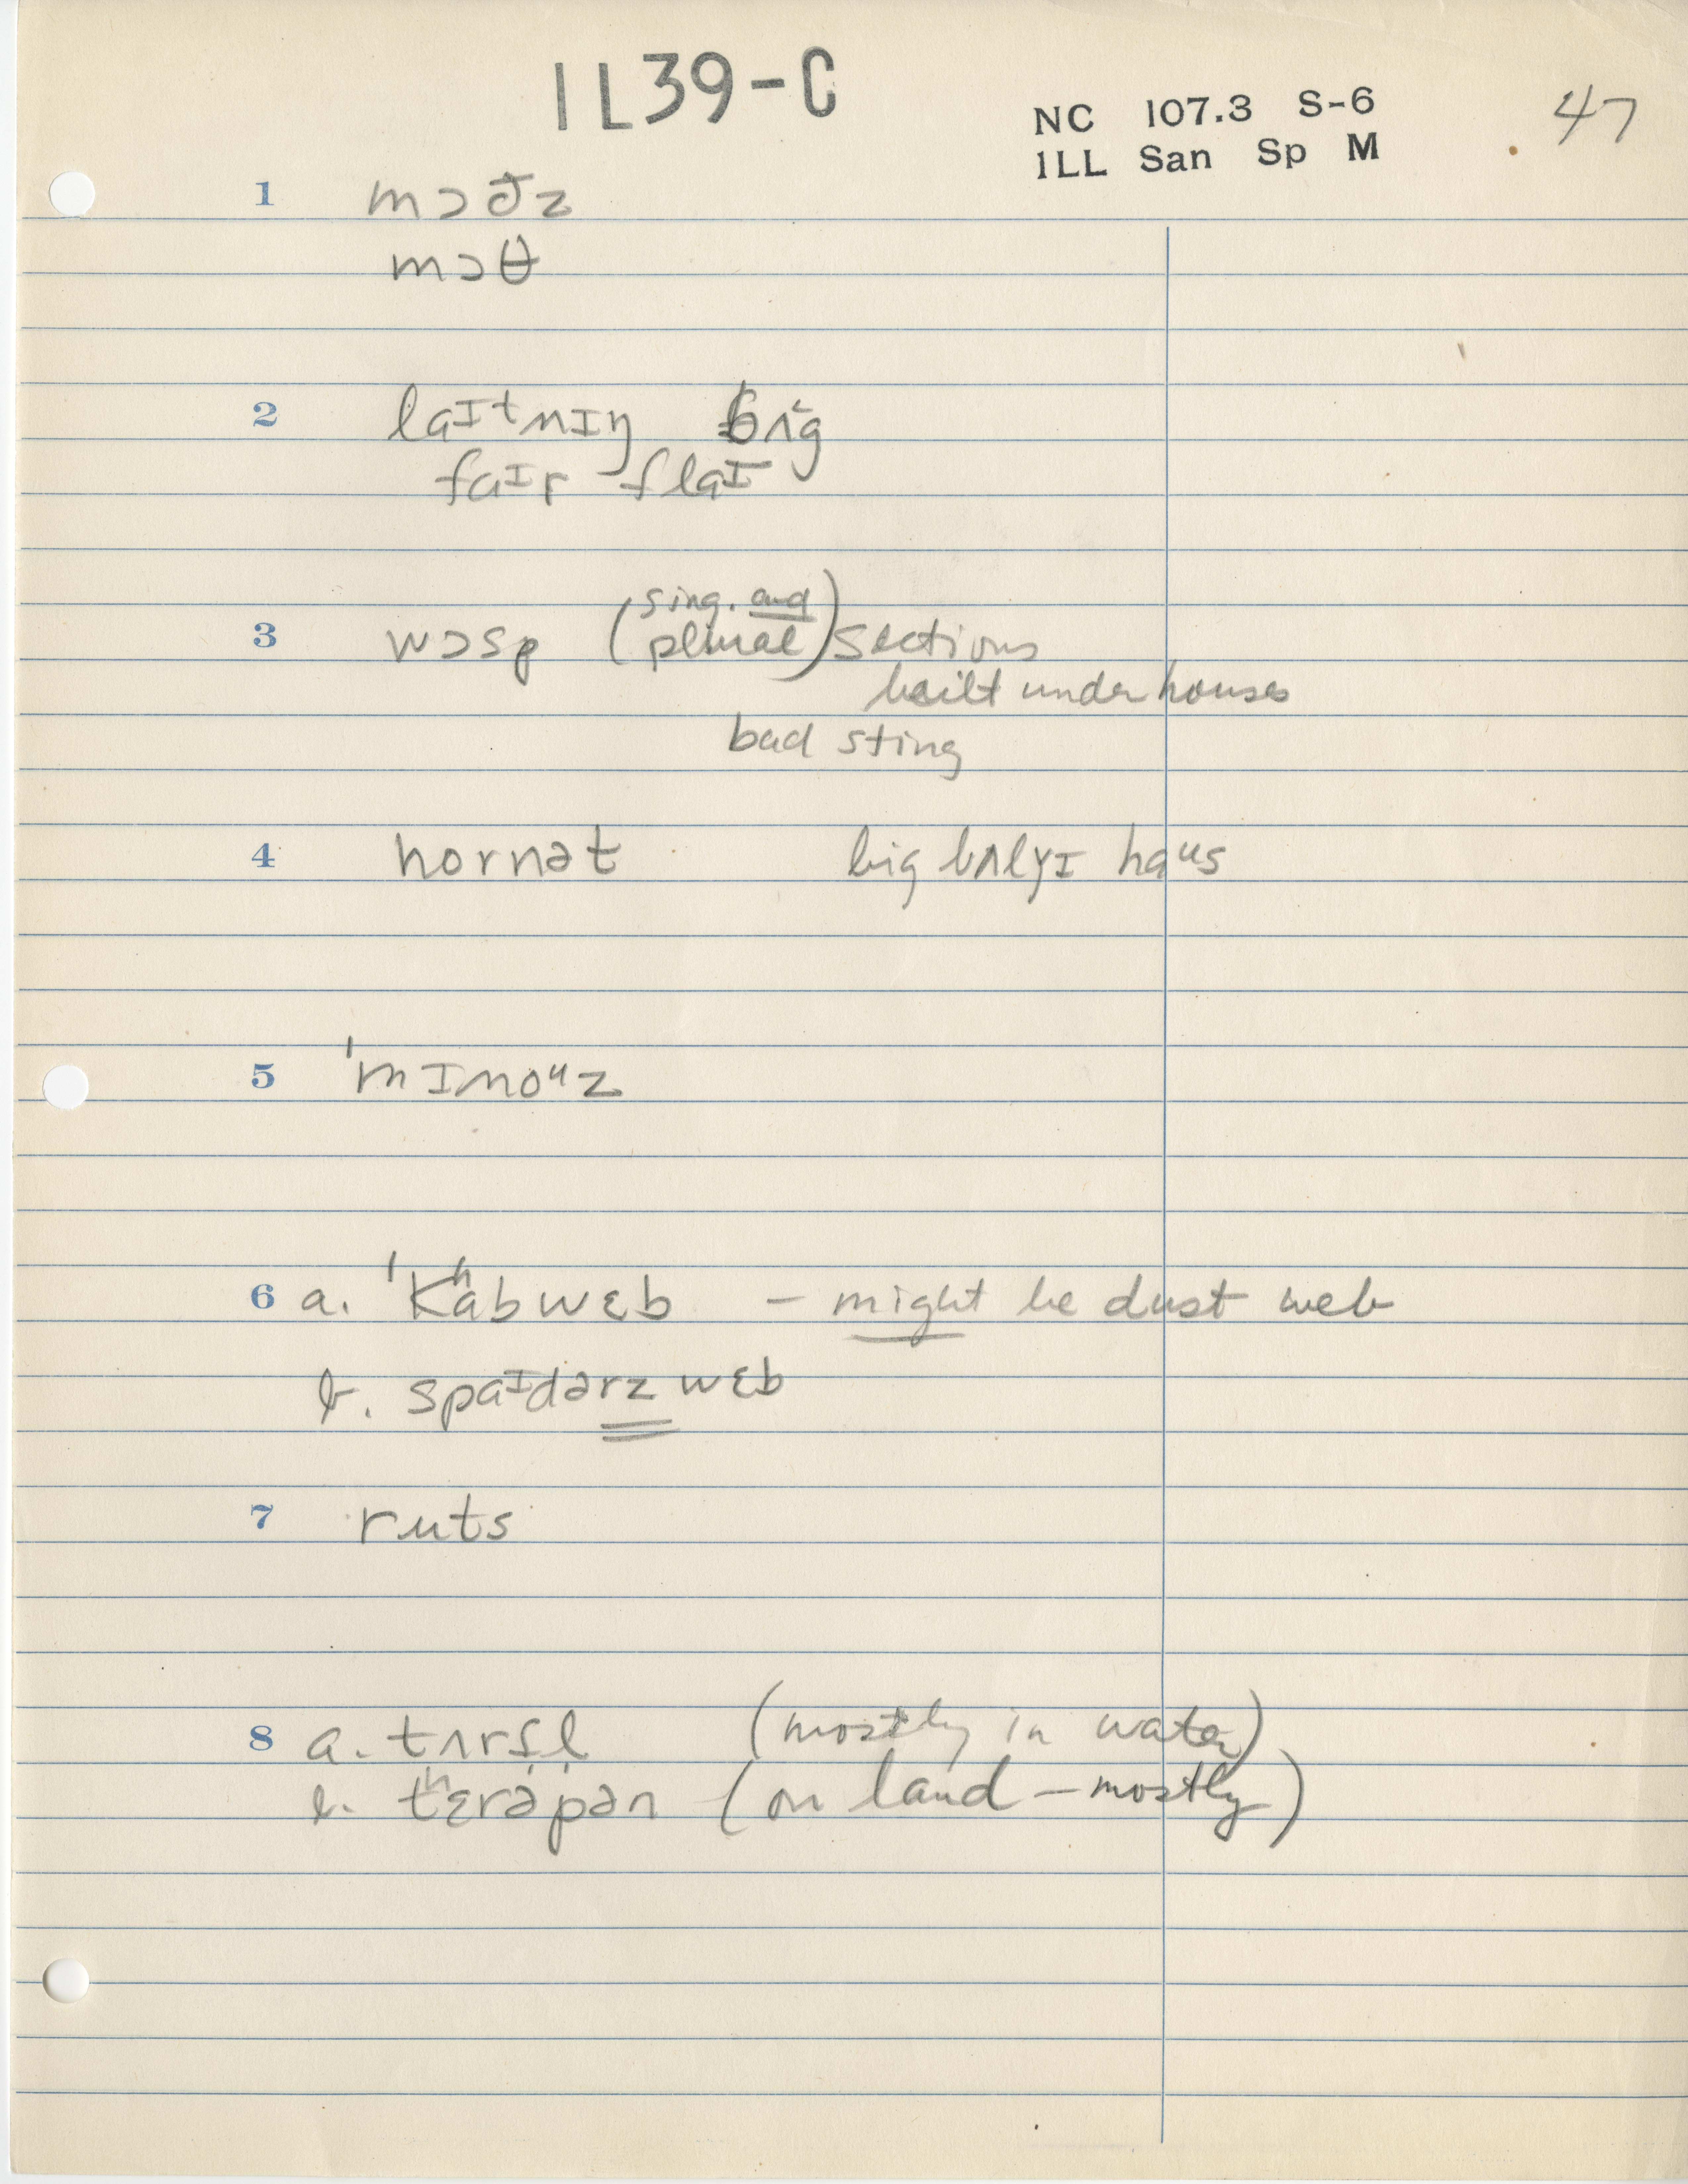 1L39-C
NC 107.3 S-6
ILL San Sp M
47
1 mɔðz
mɔθ
2 laɪtnɪŋ bʌg
faɪr flaɪ
3 wɔsp (sing. and plural) sections
built under houses
bad sting
4 hornət big bʌlγɪ haᵘs
5 'mɪnoᵘz
6 a. 'Kʰabwɛb – might be dust web
b. spaɪdərz wɛb
7 ruts
8 a. tʌrtl (mostly in water)
b. tʰɛrəpən (on land – mostly)